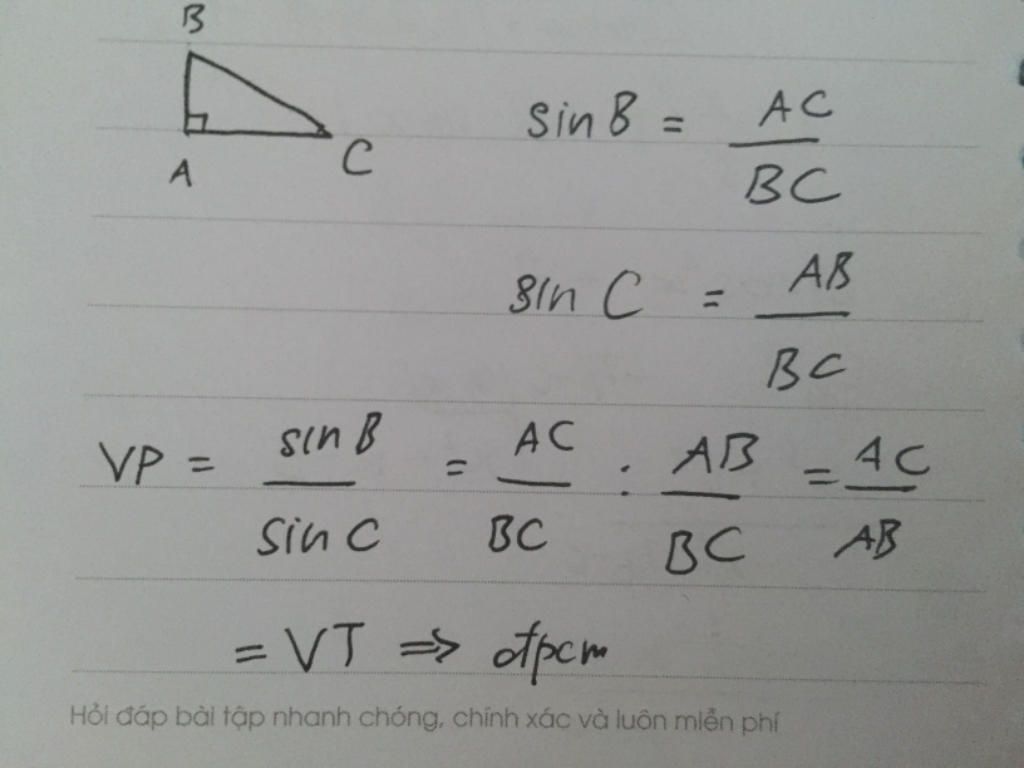 B
A
C
sin B = AC / BC
sin C = AB / BC
VP = sin B / sin C = AC / BC : AB / BC = AC / AB
= VT => đpcm
Hỏi đáp bài tập nhanh chóng, chính xác và luôn miễn phí